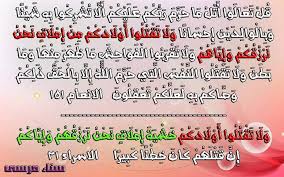 قُلْ تَعَالَوْا أَتْلُ مَا حَرَّمَ رَبُّكُمْ عَلَيْكُمْ أَلَّا تُشْرِكُوا بِهِ شَيْئًا
وَبِالْوَالِدَيْنِ إِحْسَانًا وَلَا تَقْتُلُوا أَوْلَادَكُمْ مِنْ إِمْلَاقٍ نَحْنُ
نَرْزُقُكُمْ وَإِيَّاهُمْ وَلَا تَقْرَبُوا الْفَوَاحِشَ مَا ظَهَرَ مِنْهَا وَمَا
بَطَنَ وَلَا تَقْتُلُوا النَّفْسَ الَّتِي حَرَّمَ اللَّهُ إِلَّا بِالْحَقِّ ذَلِكُمْ
وَصَّاكُمْ بِهِ لَعَلَّكُمْ تَعْقِلُونَ الانعام ١٥١
وَلَا تَقْتُلُوا أَوْلَادَكُمْ خَشْيَةَ إِمْلَاقٍ نَحْنُ نَرْزُقُهُمْ وَإِيَّاكُمْ
إِنَّ قَتْلَهُمْ كَانَ خِطْئًا كَبِيرًا الاسراء ٣١